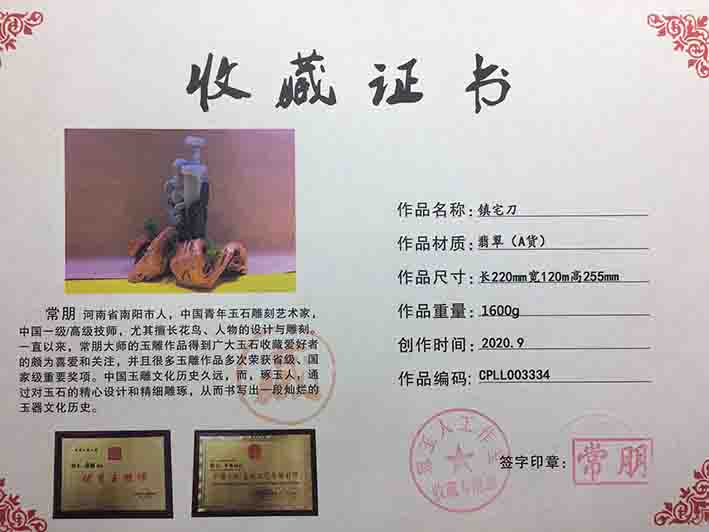 收藏证书
作品名称：镇宅刀
作品材质：翡翠（A货）
作品尺寸：长220mm宽120m高255mm
作品重量：1600g
创作时间：2020.9
作品编码：CPLL003334
常朋 河南省南阳市人，中国青年玉石雕刻艺术家，
中国一级/高级技师，尤其擅长花鸟、人物的设计与雕刻。
一直以来，常朋大师的玉雕作品得到广大玉石收藏爱好者
的颇为喜爱和关注，并且很多玉雕作品多次荣获省级、国
家级重要奖项。中国玉雕文化历史久远，而，琢玉人，通
过对玉石的精心设计和精细雕琢，从而书写出一段灿烂的
玉器文化历史。
签字印章：
常朋